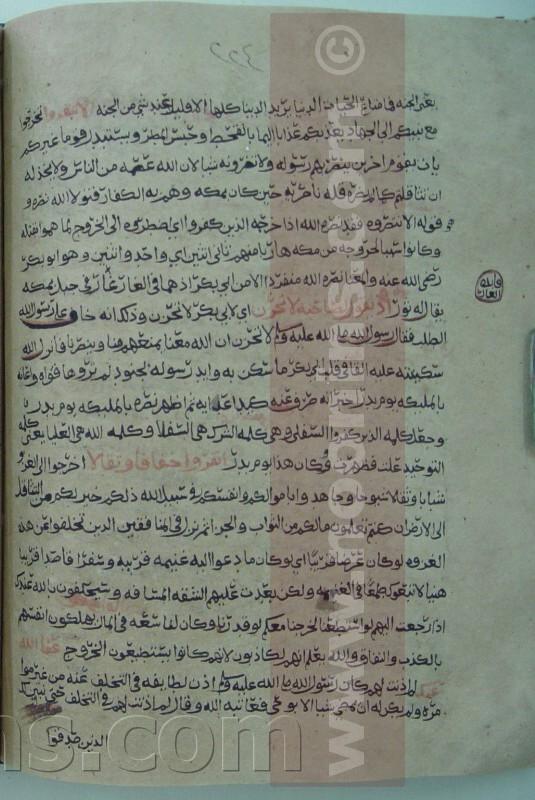 ٢٢٤
يعنى الجنه فى متاع الحياة الدنيا يريد الدنيا كلها الا قليل عند شى من الجنه الا تنفروا تخرجوا
مع نبيكم الى الجهاد يعذبكم عذابا اليما بالقحط وحبس المطر ويستبدل قوما غيركم
يات بقوم اخرين ينصر بهم رسوله ولا تضروه شيا لان الله عصمه من الناس ولا يخذله
ان تثاقلتم كما لم يضره قلة ناصريه حين كان بمكه وهم به الكفار فتولا الله نصره و
هو قوله الا تنصروه فقد نصره الله اذ اخرجه الذين كفروا اى اضطروه الى الخروج لما هموا بقتله
وكانوا سببا لخروجه من مكه هاربا منهم ثانى اثنين اى واحد واثنين وهو ابو بكر
رضى الله عنه والمعنا نصره الله منفردا الا من ابى بكر اذ هما فى الغار غار فى جبل بمكه
يقال له ثور اذ يقول لصاحبه لا تحزن اى لابى بكر لا تحزن وذلك انه خاف على رسول الله
الطلب فقال رسول الله صلى الله عليه وسلم لا تحزن ان الله معنا يمنعهم منا وينصرنا فانزل الله
سكينته عليه القا فى قلب ابى بكر ما سكن به وايد رسوله بجنود لم تروها قواه واعانه
بالملايكه يوم بدر اخبر انه صرف عنه كيد اعدايه ثم اظهر نصره بالملايكه يوم بدر
وجعل كلمه الذين كفروا السفلى وهى كلمه الشرك هى السفلا وكلمه الله هى العليا يعنى كلمه
التوحيد علت فظهرت وكان هذا يوم بدر انفروا خفافا وثقالا اخرجوا الى الغزو
شبابا وثقالا شيوخا وجاهدوا باموالكم وانفسكم فى سبيل الله ذلكم خير لكم من التثاقل
الى الارض ان كنتم تعلمون ما لكم من الثواب والجزا ثم نزل فى المنافقين الذين تخلفوا عن هذه
الغزوه لو كان عرضا قريبا اى لو كان ما دعوا اليه غنيمه قريبه وسفرا قاصدا قريبا
هينا لاتبعوك طمعا فى الغنيمه ولكن بعدت عليهم الشقه المسافه وسيحلفون بالله عندك
اذا رجعت اليهم لو استطعنا لخرجنا معكم لو قدرنا وكان لنا سعه فى المال يهلكون انفسهم
بالكذب والنفاق والله يعلم انهم لكاذبون لانهم كانوا يستطيعون الخروج عفا الله
عنك لم اذنت لهم كان رسول الله صلى الله عليه وسلم اذن لطايفه فى التخلف عنه من غير موا
مره ولم يكن له ان يمضى شيا الا بوحى فعاتبه الله وقال لم اذنت لهم فى التخلف حتى يتبين لك
الذين صدقوا
www.modhism.com
©
ns.com